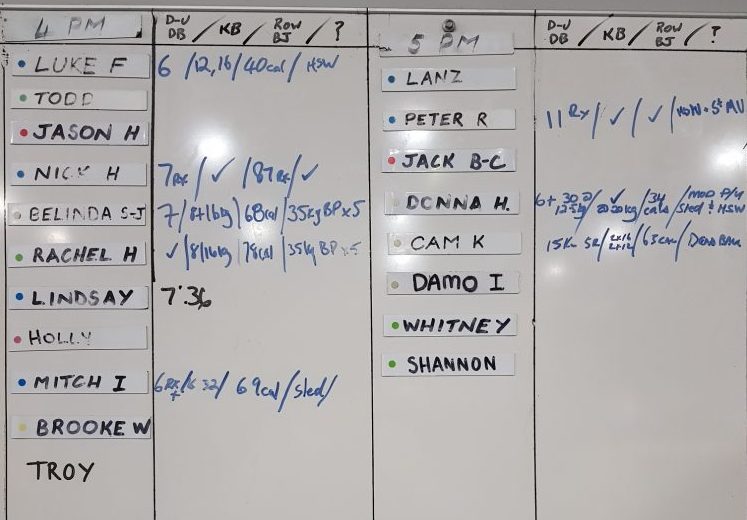 4 PM
D-U DB / KB / Row BJ / ?
LUKE F 6 / 12,16 / 40cal / HSW
TODD
JASON H
NICK H 7 Rx / ✓ / 87 Rx / ✓
BELINDA S-J 7 / 8+16kg / 68cal / 35kg BP x 5
RACHEL H ✓ / 8/16kg / 78cal / 35kg BP x 5
LINDSAY 7'36
HOLLY
MITCH I 6 Rx + / 32 / 69cal / Sled /
BROOKE W
TROY
5 PM
D-U DB / KB / Row BJ / ?
LANZ
PETER R 11 Rx / ✓ / ✓ /
JACK B-C
DONNA H. 6+ 30 12.5kg / ✓ 20kg / 34 cals / MOD P/U Sled + HSW
CAM K 15kg / 2x16 2x16 /
DAMO I
WHITNEY
SHANNON